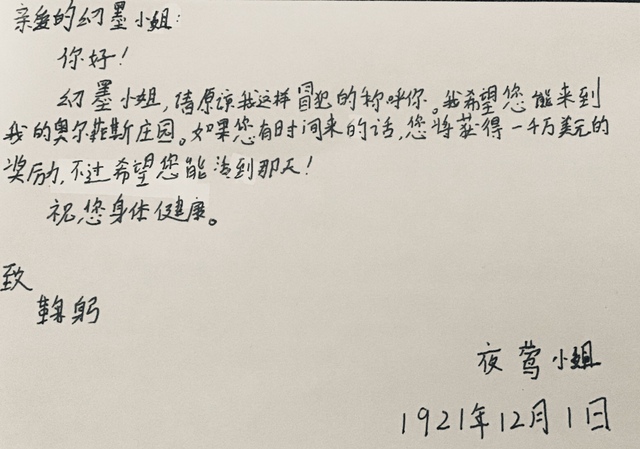 亲爱的幻墨小姐:
你好!
幻墨小姐,请原谅我这样冒犯的称呼你。我希望您能来到
我的奥尔菲斯庄园。如果您有时间来的话,您将获得一千万美元的
奖励,不过希望您能活到那天!
祝您身体健康。
致
鞠躬
夜莺小姐
1921年12月1日